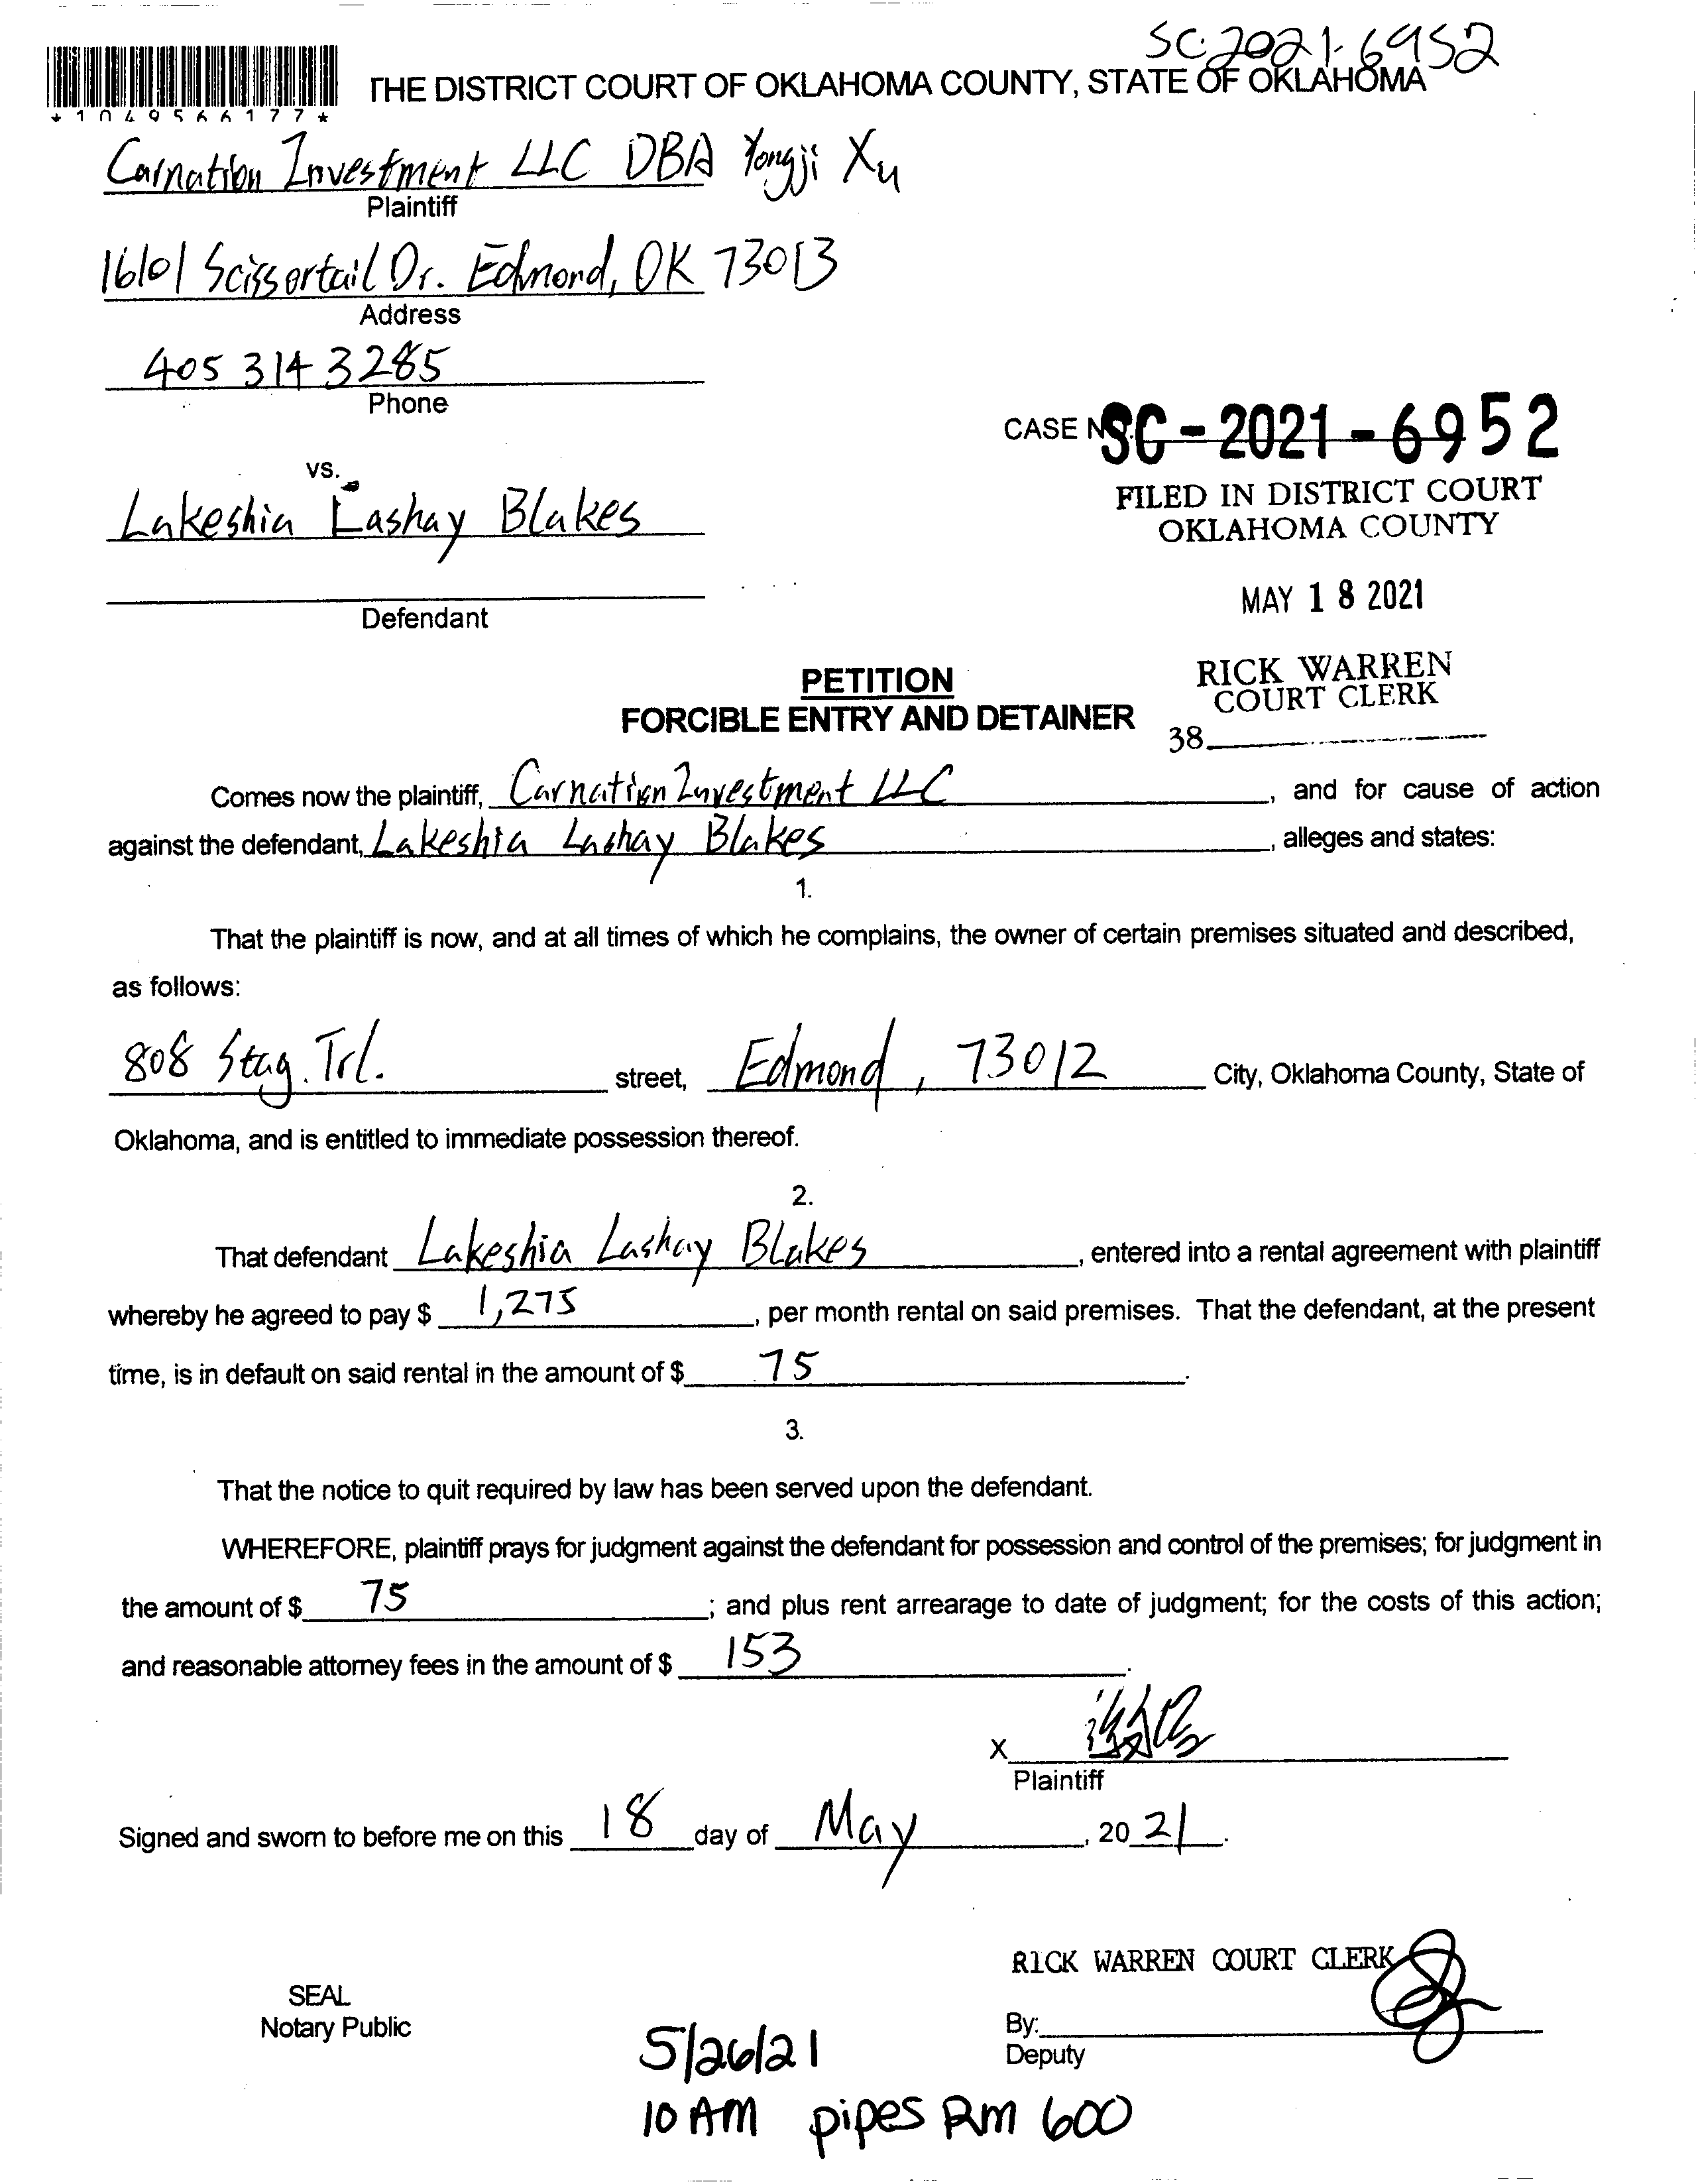 SC-2021-6952
*1049566177*
THE DISTRICT COURT OF OKLAHOMA COUNTY, STATE OF OKLAHOMA
Carnation Investment LLC DBA Yongji Xu
Plaintiff
16101 Scissortail Dr. Edmond, OK 73013
Address
405 314 3285
Phone
CASE NO. SC-2021-6952
FILED IN DISTRICT COURT
OKLAHOMA COUNTY
vs.
Lakeshia Lashay Blakes
MAY 18 2021
Defendant
RICK WARREN
COURT CLERK
38
PETITION
FORCIBLE ENTRY AND DETAINER
Comes now the plaintiff, Carnation Investment LLC, and for cause of action
against the defendant, Lakeshia Lashay Blakes, alleges and states:
1.
That the plaintiff is now, and at all times of which he complains, the owner of certain premises situated and described,
as follows:
808 Stag Trl. street, Edmond, 73012 City, Oklahoma County, State of
Oklahoma, and is entitled to immediate possession thereof.
2.
That defendant Lakeshia Lashay Blakes, entered into a rental agreement with plaintiff
whereby he agreed to pay $ 1,275, per month rental on said premises. That the defendant, at the present
time, is in default on said rental in the amount of $ 75.
3.
That the notice to quit required by law has been served upon the defendant.
WHEREFORE, plaintiff prays for judgment against the defendant for possession and control of the premises; for judgment in
the amount of $ 75; and plus rent arrearage to date of judgment; for the costs of this action;
and reasonable attorney fees in the amount of $ 153.
X
Plaintiff
Signed and sworn to before me on this 18 day of May, 20 21.
RICK WARREN COURT CLERK
SEAL
Notary Public
By:
Deputy
5/26/21
10 AM pipes Rm 600